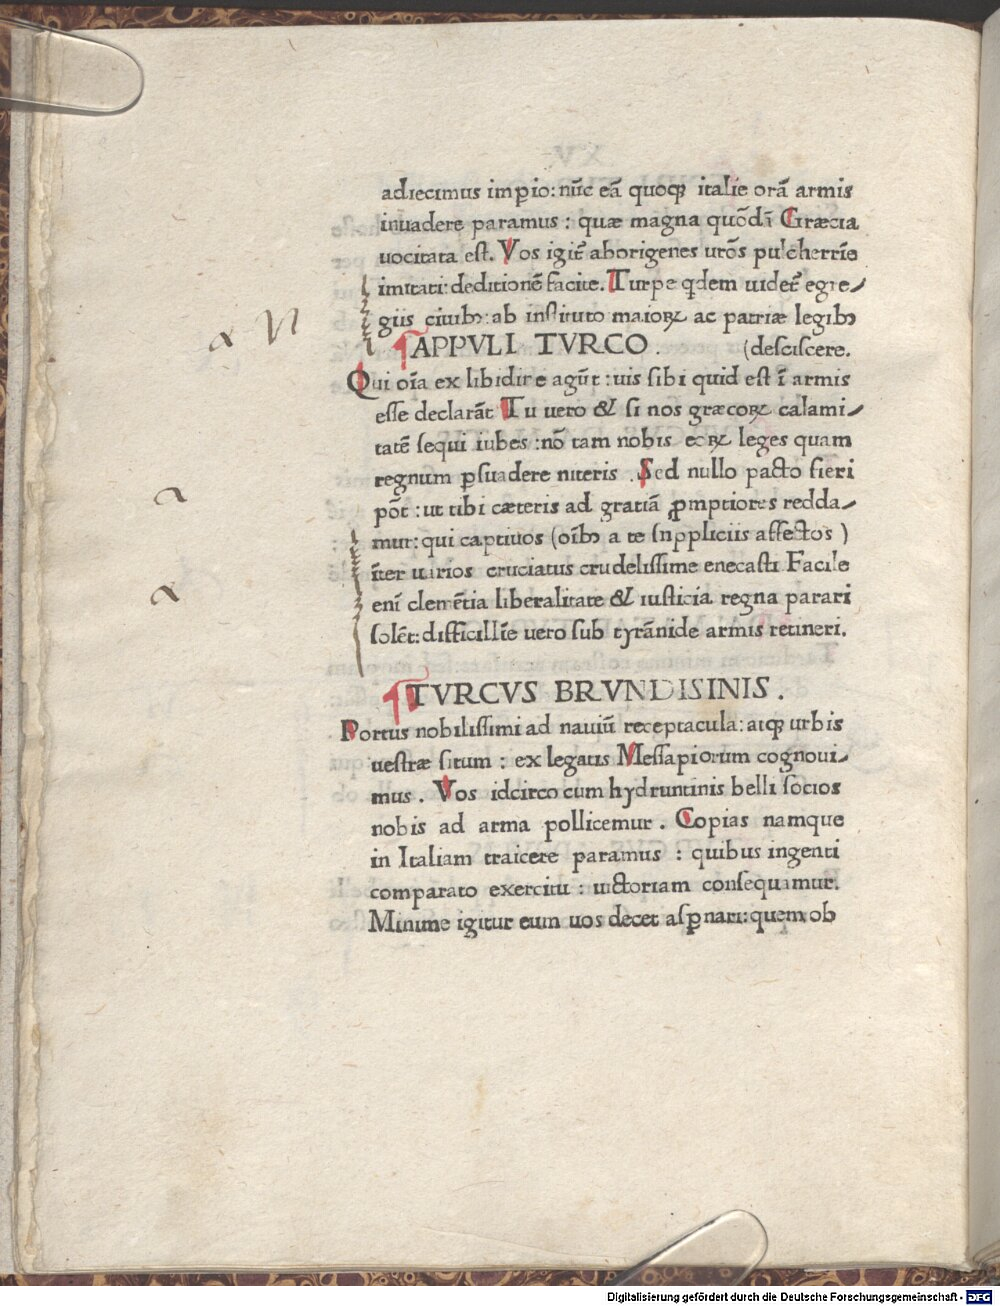 adiecimus imp̱io: nūc eā quoqꝫ italie orā armis
inuadere paramus : quæ magna quōdā Græcia
uocitata est. Vos igit᷑ aborigenes uros̄ pulcherrīe
imitati: deditionē facite. Turpe qdem uidet᷑ egre⸗
giis ciuibꝫ: ab instituto maioꝝ ac patriæ legibꝫ
APPVLI TVRCO . (desciscere.
Qui oīa ex libidine agūt : uis sibi quid est ī armis
esse declarāt Tu uero & si nos græcoꝝ calami⸗
tatē sequi iubes :nō tam nobis eoꝝ leges quam
regnum ꝑsuadere niteris . Sed nullo pacto fieri
pōt : ut tibi cæteris ad gratiā ꝓmptiores redda⸗
mur: qui captiuos (oībꝫ a te snppliciis affectos )
īter uarios cruciatus crudelissime enecasti Facile
enī clemētia liberalitate & iusticia regna parari
solēt: difficillīe uero sub tyrānide armis retineri.
TVRCVS BRVNDISINIS .
Portus nobilissimi ad nauiū receptacula: atqꝫ urbis
uestræ situm : ex legatis Messapiorum cognoui⸗
mus . Vos idcirco cum hydruntinis belli socios
nobis ad arma pollicemur . Copias namque
in Italiam traicere paramus : quibus ingenti
comparato exercitu : uictoriam consequamur.
Minime igitur eum uos decet asꝑnari: quem ob
Digitalisierung gefördert durch die Deutsche Forschungsgemeinschaft - DFG